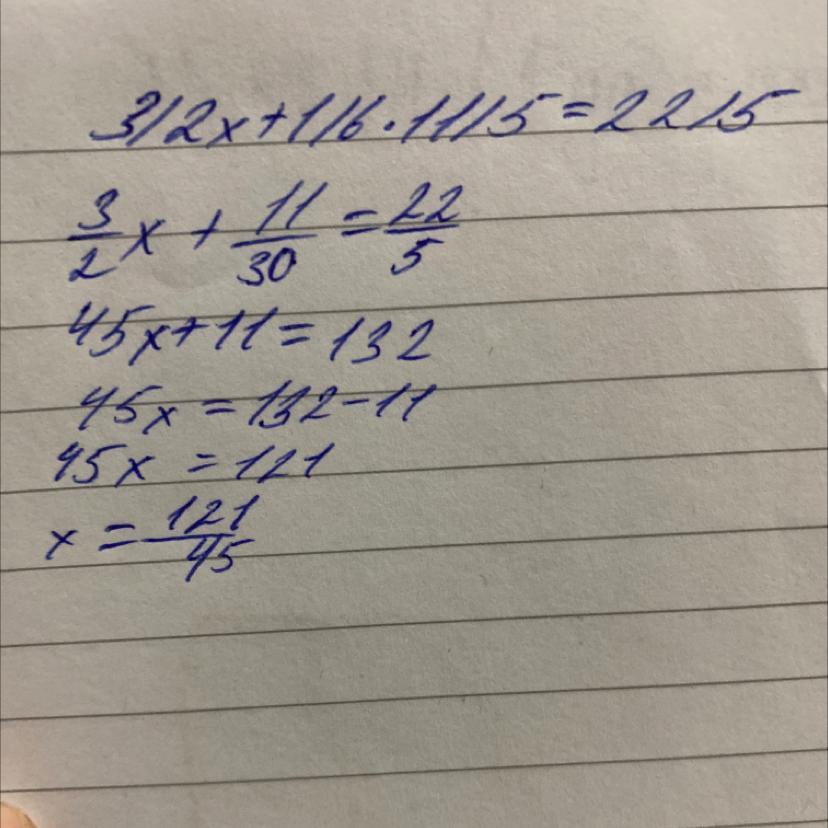 3/2x+1/6·11/5=22/5
3/2 x + 11/30 = 22/5
45x+11=132
45x=132-11
45x=121
x=121/45